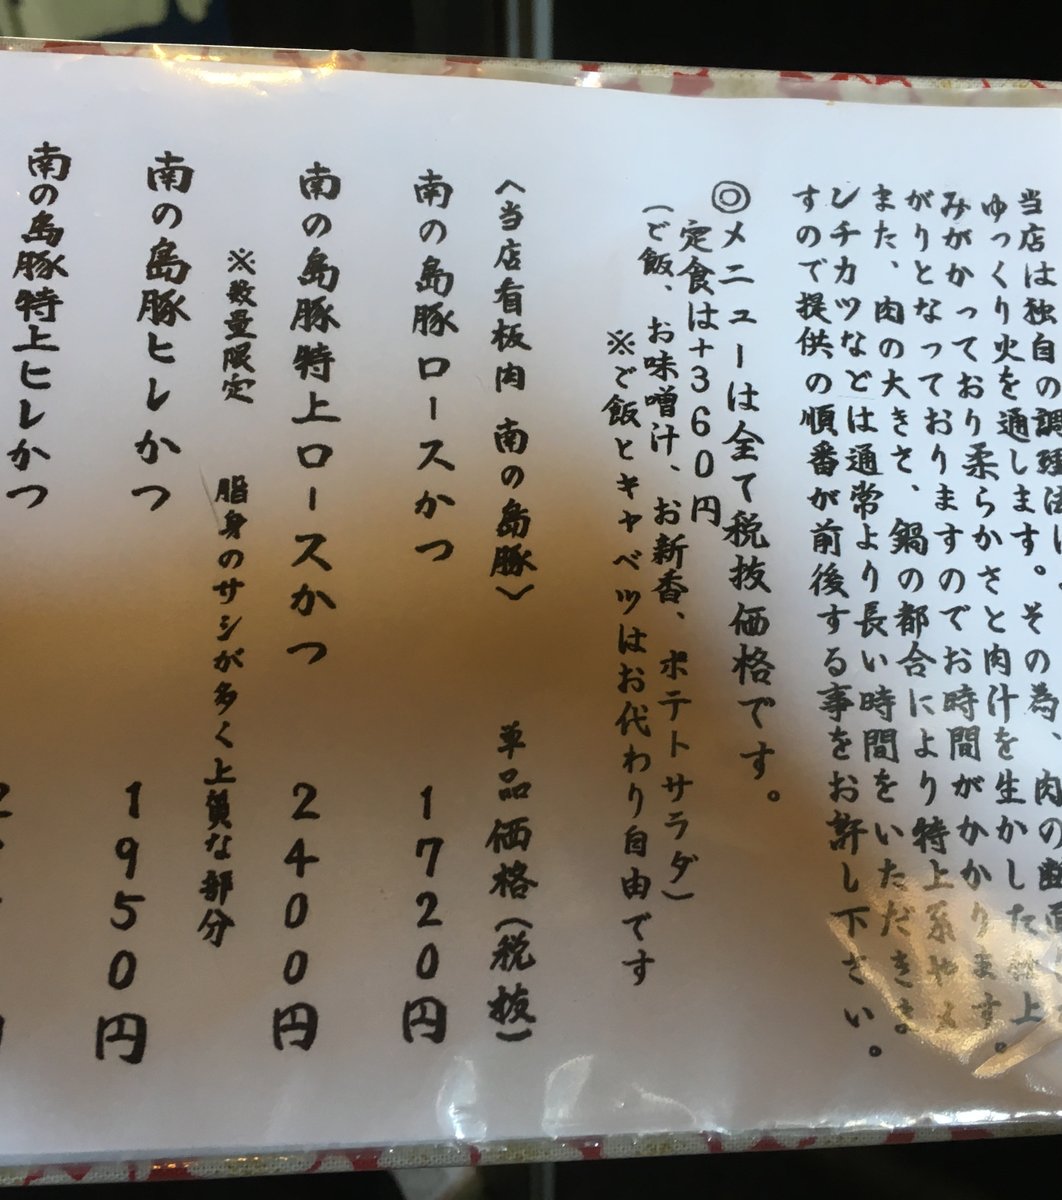 当店は独自の調理法に
ゆっくり火を通します。その為、肉の断面
みがかっており柔らかさと肉汁を生かした
がりとなっておりますのでお時間がかかります。
また、肉の大きさ、鍋の都合により特上系や
レチカツなどは通常より長い時間をいただきま
すので提供の順番が前後する事をお許し下さい。
◎メニューは全て税抜価格です。
定食は+360円
(ご飯、お味噌汁、お新香、ポテトサラダ)
※ご飯とキャベツはお代わり自由です
〈当店看板肉 南の島豚〉 単品価格(税抜)
南の島豚ロースかつ 1720円
南の島豚特上ロースかつ 2400円
※数量限定 脂身のサシが多く上質な部分
南の島豚ヒレかつ 1950円
南の島豚特上ヒレかつ